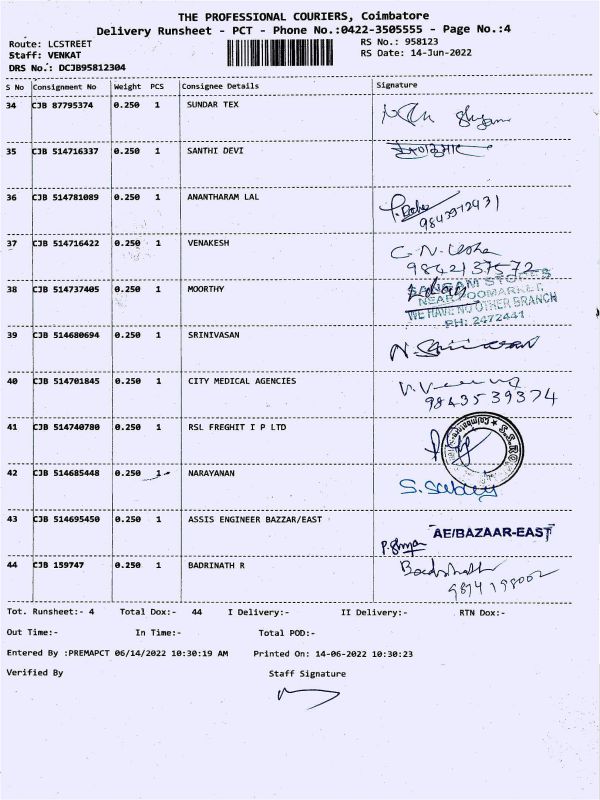 THE PROFESSIONAL COURIERS, Coimbatore
Delivery Runsheet - PCT - Phone No.:0422-3505555 - Page No.:4
Route: LCSTREET
RS No.: 958123
Staff: VENKAT
RS Date: 14-Jun-2022
DRS No.: DCJB95812304
S No Consignment No Weight PCS Consignee Details Signature
34 CJB 87795374 0.250 1 SUNDAR TEX
35 CJB 514716337 0.250 1 SANTHI DEVI
36 CJB 514781089 0.250 1 ANANTHARAM LAL
37 CJB 514716422 0.250 1 VENAKESH
9842137572
38 CJB 514737405 0.250 1 MOORTHY
NEAR POOMARKET
WE HAVE NO OTHER BRANCH
PH: 2472441
39 CJB 514680694 0.250 1 SRINIVASAN
40 CJB 514701845 0.250 1 CITY MEDICAL AGENCIES
9843539374
41 CJB 514740780 0.250 1 RSL FREGHIT I P LTD
42 CJB 514685448 0.250 1 NARAYANAN
43 CJB 514695450 0.250 1 ASSIS ENGINEER BAZZAR/EAST
AE/BAZAAR-EAST
44 CJB 159747 0.250 1 BADRINATH R
Tot. Runsheet:- 4 Total Dox:- 44 I Delivery:- II Delivery:- RTN Dox:-
Out Time:- In Time:- Total POD:-
Entered By :PREMAPCT 06/14/2022 10:30:19 AM Printed On: 14-06-2022 10:30:23
Verified By Staff Signature